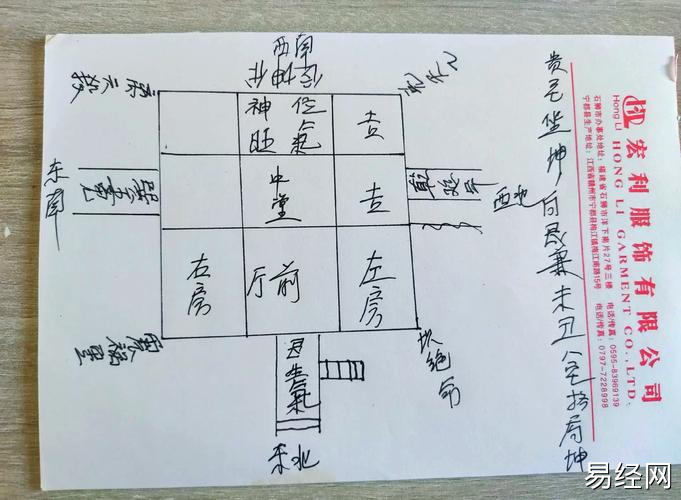 宏利服饰有限公司
Hong Li HONG LI GARMENT CO., LTD.
石狮市办事处地址：福建省石狮市洋下南片27号三楼 电话/传真：0595-83969139
宁都县生产地址：江西省赣州市宁都县梅江镇梅江南路15号 电话/传真：0797-7228998
贵宅坐坤向艮兼未丑
局坤
西南
东南
西北
神位
旺气
吉
中堂
吉
右房
厅前
左房
坎绝命
艮生气
东北
易经网